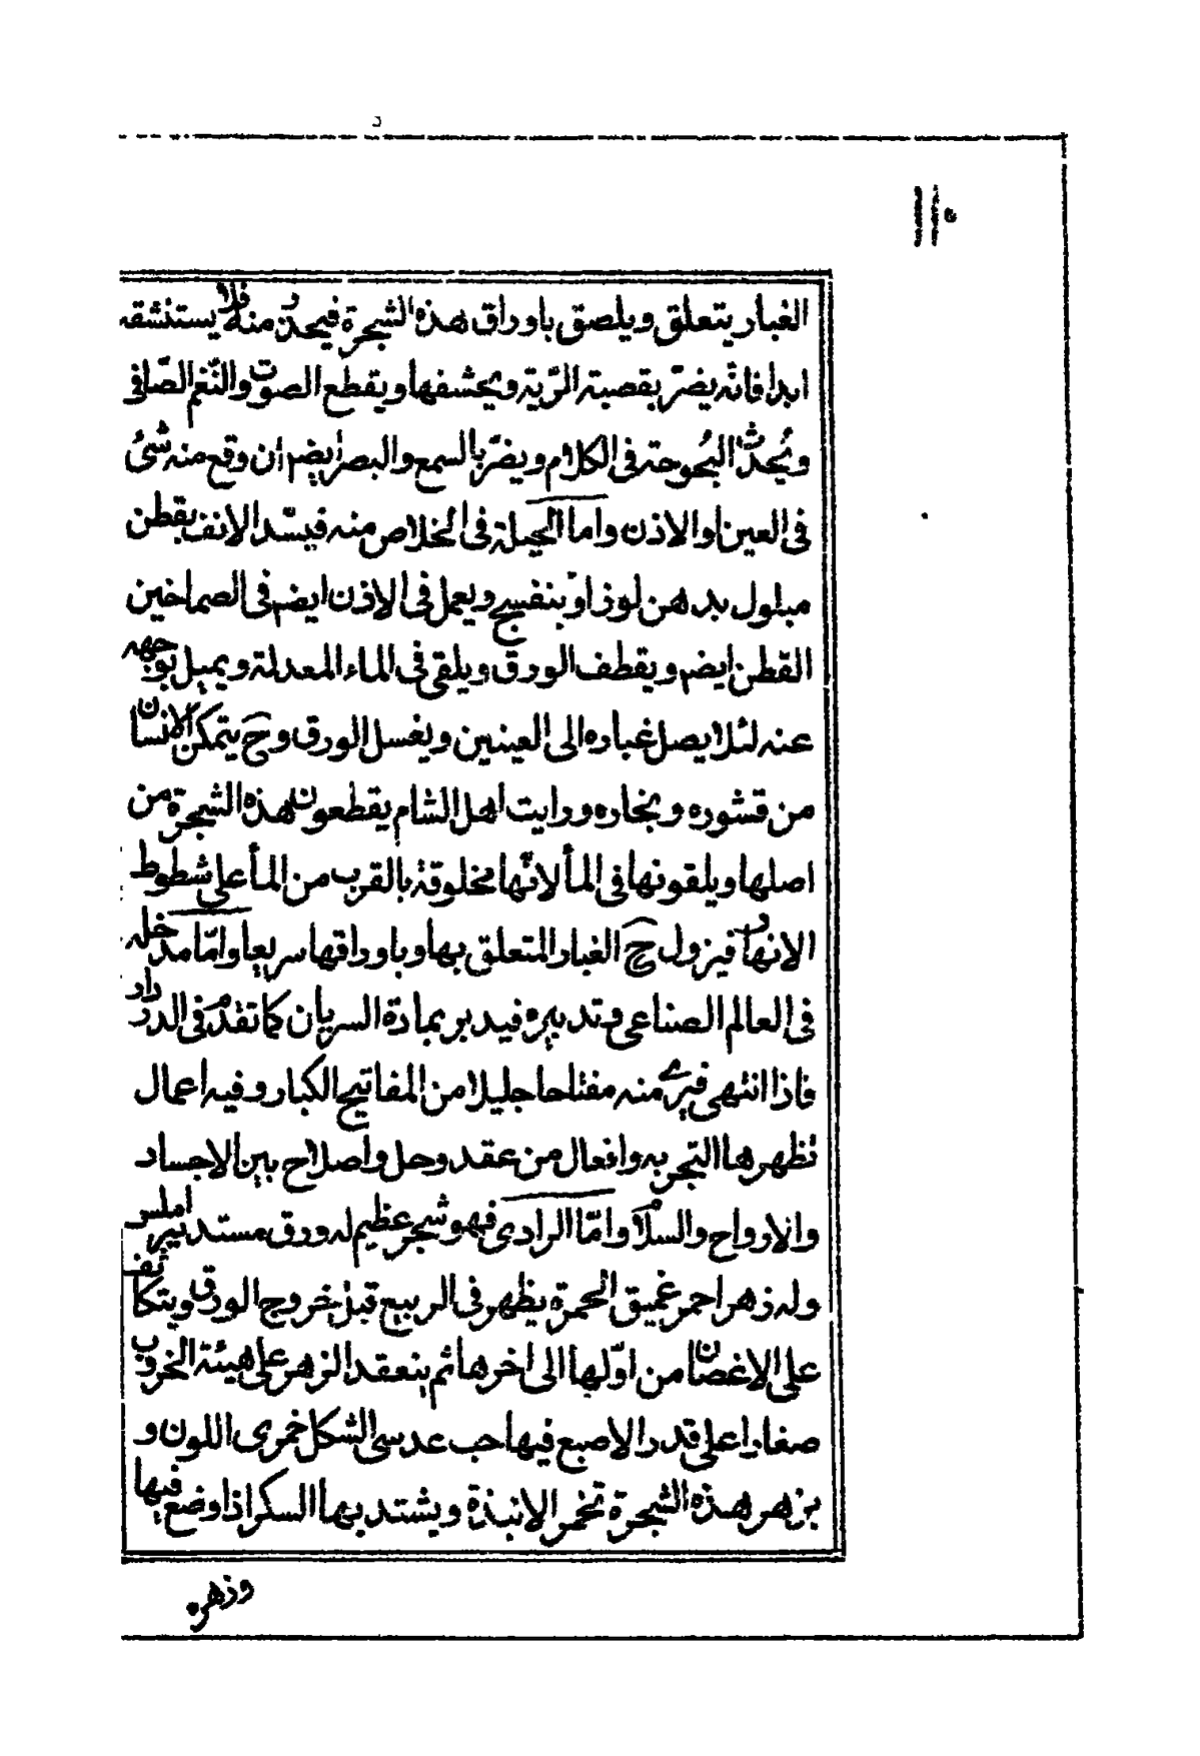 ١١٥
الغبار يتعلق ويلصق باوراق هذه الشجرة فيحذر منه فلا يستنشقه
ابدا فانه يضرّ بقصبته الرّية ويخشفها ويقطع الصوت والنّغم الصّافى
ويُحدث البُحوحة فى الكلام ويضرّ بالسمع والبصر ايضم ان وقع منه شئ
فى العين او الاذن واما الحيلة فى الخلاص منه فيسّد الانف بقطن
مبلول بدهن لوز او بنفسج ويعمل فى الاذن ايضم فى الصماخين
القطن ايضم ويقطف الورق ويلقى فى الماء المعدلة ويميل بوجهه
عنه لئلا يصل غباره الى العينين ويغسل الورق وح يتمكن الانسان
من قشوره وبخاره ورايت اهل الشام يقطعون هذه الشجرة من
اصلها ويلقونها فى المأ لانّها مخلوقة بالقرب من المأ على شطوط
الانهار فيزول ح الغبار المتعلق بها وباوراقها سريعا وامّا مدخله
فى العالم الصناعى وتدبيره فيدبر بمادة السريان كما تقدم فى الدردار
فاذا انتهى فيرى منه مفتاحا جليلا من المفاتيح الكبار وفيه اعمال
تظهرها التجربه وافعال من عقد وحل واصلاح بين الاجساد
والارواح والسلام وامّا الرادى فهو شجر عظيم له ورق مستدير املس
وله زهر احمر غميق الحمرة يظهر فى الربيع قبل خروج الورق ويتكاثف
على الاغصان من اوّلها الى اخرها ثم ينعقد الزهر على هيئة الخروب
صغارا على قدر الاصبع فيها حب عدسى الشكل خمرى اللون و
بزهر هذه الشجرة تخمر الانبذة ويشتد بها السكر اذا وضع فيها
وزهره